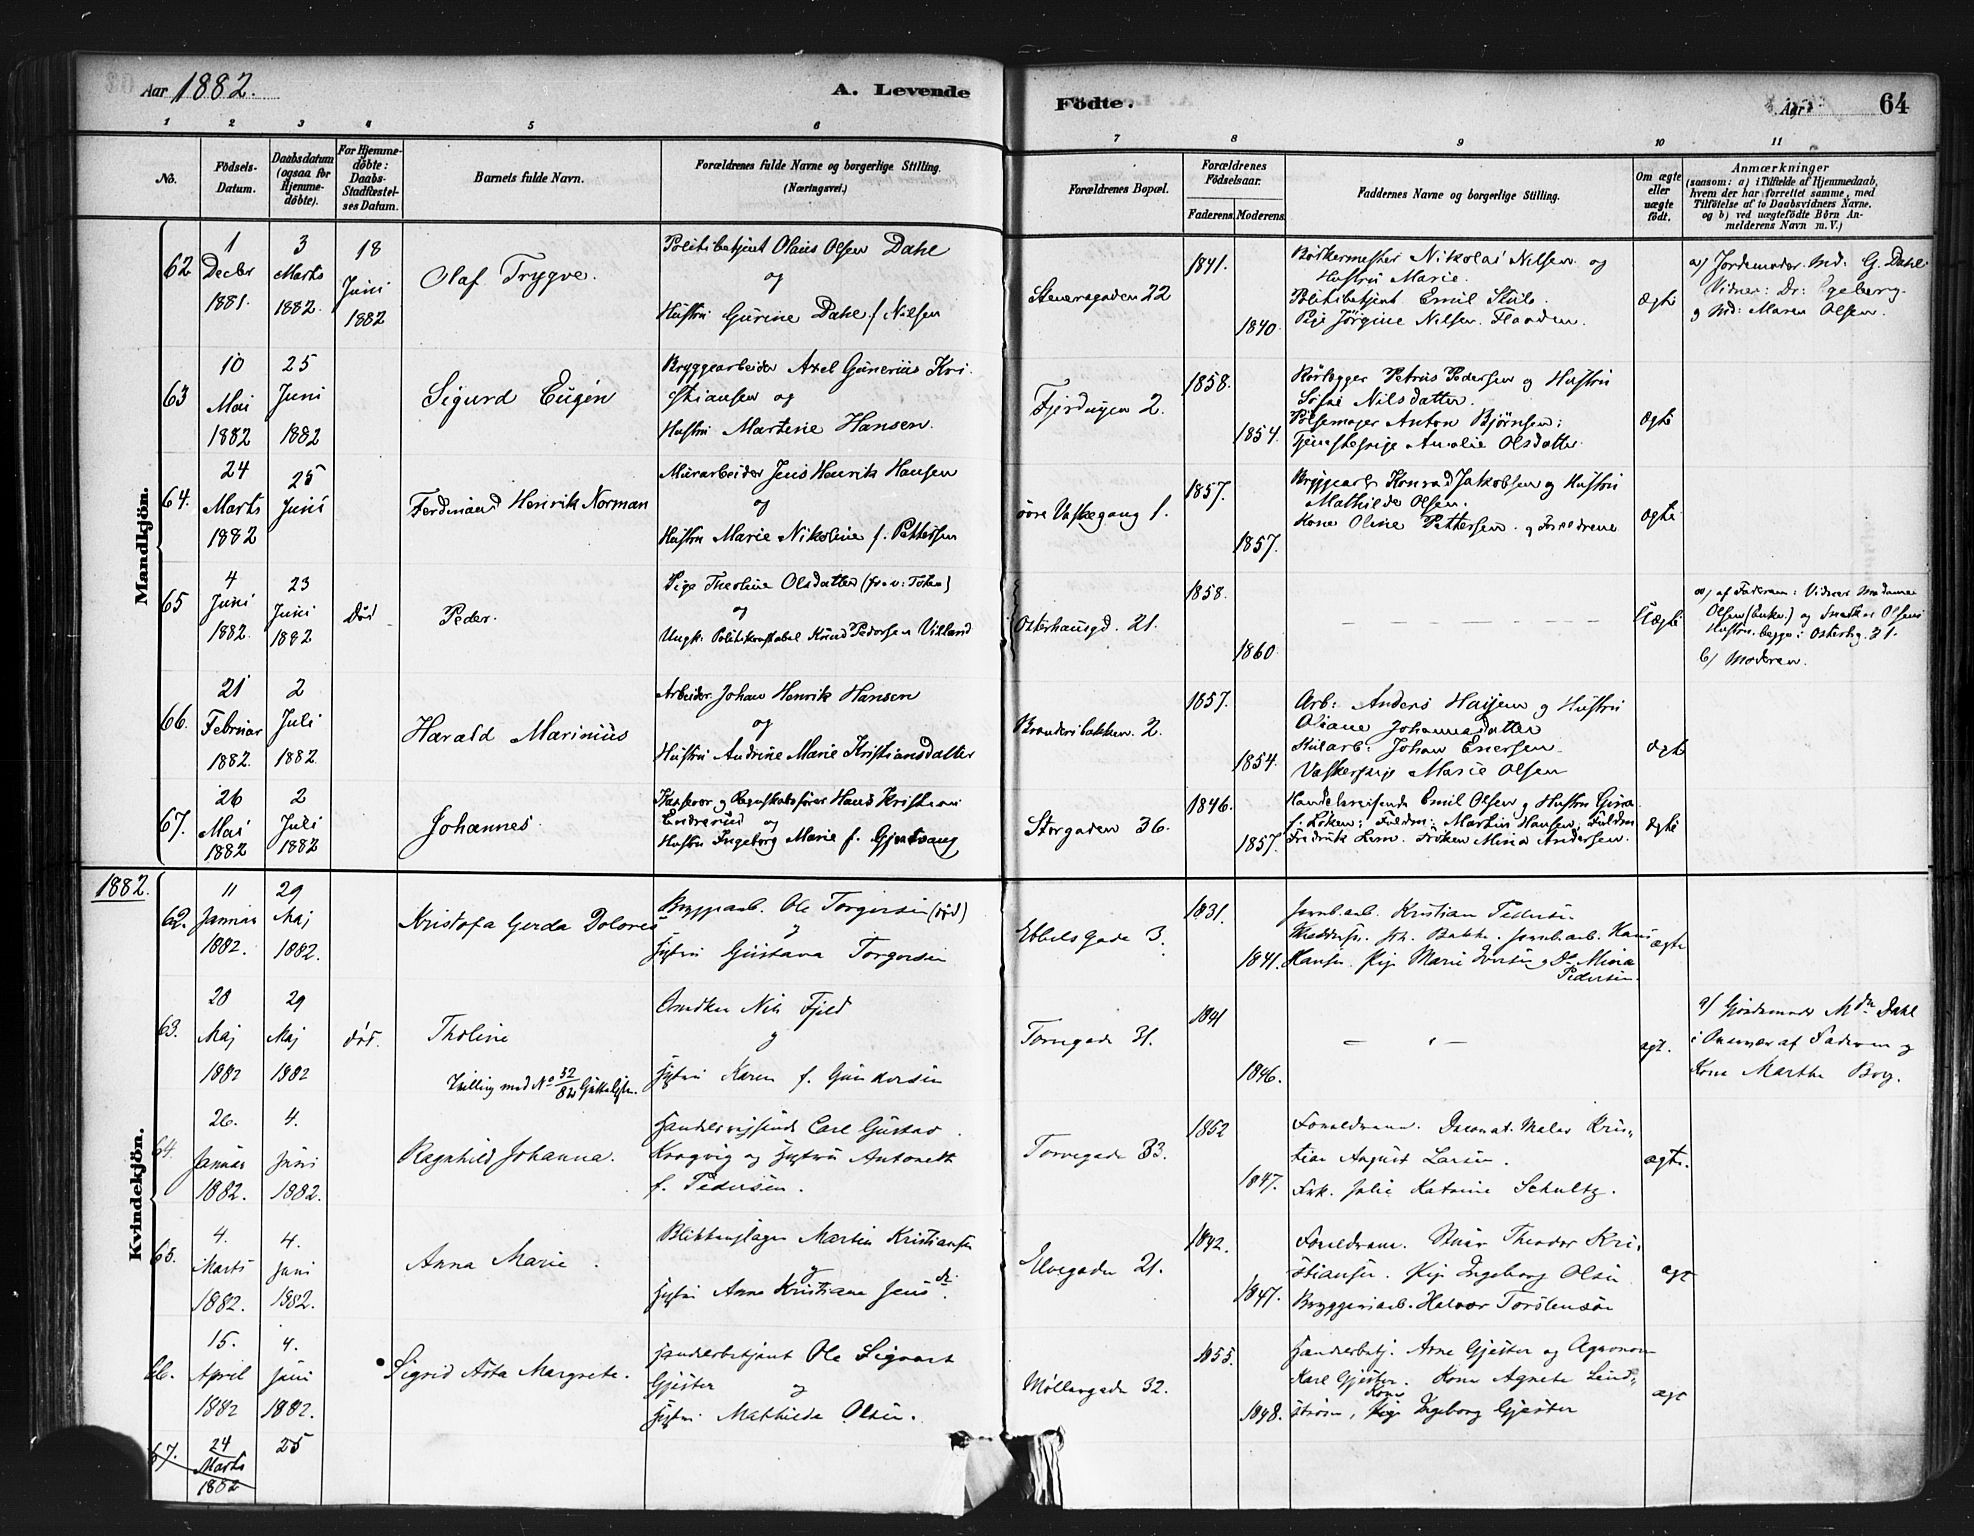 Aar 1882.
A. Levende
Födte.
Aar
64
1 2 3 4 5 6 7 8 9 10 11
No.
Födsels-
Datum.
Daabsdatum
(ogsaa for
Hjemme-
döbte).
For Hjemme-
döbte:
Daabs-
Stadfæstel-
ses Datum.
Barnets fulde Navn.
Forældrenes fulde Navne og borgerlige Stilling.
(Næringsvei.)
Forældrenes Bopæl.
Forældrenes
Födselsaar.
Faderens.
Moderens.
Faddernes Navne og borgerlige Stilling.
Om ægte
eller
uægte
födt.
Anmærkninger
(saasom: a) i Tilfælde af Hjemmedaab,
hvem der har forrettet samme, med
Tilföielse af to Daabsvidners Navne,
og b) ved uægtefödte Börn An-
melderens Navn m. V.)
Mandkjön.
62
1
Decbr
1881.
3
Marts
1882.
18
Juni
1882
Olaf Trygve.
Politibetjent Olaus Olsen Dahl
og
Hustru Gurine Dahl f. Nilsen
Steensgaden 22
1841.
1840.
Bödkermester Nikolai Nilsen og
Hustru Marie.
Politibetjent Emil
Pige Jörgine Nilsen
Ægte
a/ Jordemoder Md: G. Dahl
Vidner: Dr: Egeberg.
og Md: Maren Olsen.
63
10
Mai
1882
25
Juni
1882
Sigurd Eugén
Bryggearbeider Axel Gunerius Kri-
stiansen og
Hustru Martine Hansen.
Fjerdingen 2.
1858.
1854.
Rörlægger Petrus Pedersen og Hustru
Sofie Nilsdatter.
Pölsemager Anton Bjørnsen:
Tjenestepige Amalie Olsdatter
Ægte
64.
24
Marts
1882
25
Juni
Ferdinand Henrik Norman
Murarbeider Jens Henrik Hansen
og
Hustru Marie Nikoline f. Pettersen
övre Vaskegang 1.
1857.
1857.
Bryggearb Konrad Jakobsen og Hustru
Mathilde Olsen.
Kone Oline Pettersen og Forældrene
Ægte
65
4
Juni
1882.
23
Juni
1882
Död
Peder.
Pige Theoline Olsdatter (fra v: Toten)
og
Ungk. Politikonstabel Knud Pedersen Villand
Osterhausgd. 21.
1858.
1860
Uægte
a/ af Faderen: Vidner Madame
Olsen (Enke.) og Snedker Olsens
Hustru. begge i Osterhg. 21.
b/ Moderen.
66.
21
Februar
1882.
2
Juli
1882.
Harald Marinius
Arbeider Johan Henrik Hansen
og
Hustru Andrine Marie Kristiansdatter
Brinderibakken. 2.
1857.
1854.
Arb: Anders Hansen og Hustru
Oliane Johannesdatter
Johan Enersen
Vaskerpige Marie Olsen
Ægte
67.
26
Mai
1882
2
Juli
1882
Johannes.
Kasserer og Regnskabsförer Hans Kristian
Endresrud og
Hustru Ingeborg Marie f. Gjestvang
Storgaden 36.
1846.
1857.
Handelsreisende Emil Olsen og Hustru Gina
f. Løken: Fuldm: Martin Hansen, Fuldm
Fredrik Lem. Fröken Mina Andersen.
Ægte
1882.
Kvindekjön.
62.
11
Januar
1882.
29
Maj
1882.
Kristofa Gerda Dolores
Bryggearb. Ole Torgersen (död)
og
Hustru Gustava Torgersen
Ebbels Gade 3.
1831.
1841.
Jernb.arb. Kristian Pedersen
Joh. Bakke. Jernb.arb. Hans
Hansen. Pige Marie Iversen og Do Mina
Pedersen.
ægte
63.
20
Maj
1882
29
Maj
1882
död.
Tholine
Tvilling med No 32/82 Gutteliste.
Snedker Nils Fjeld
og
Hustru Karen f. Gundersen
Torvegade 31.
1841
1846.
ægt.
a/ Gjordemoder Mdm Dahl
i Overvær af Faderen og
Kone Marthe Berg.
64.
26.
Januar
1882.
4.
Juni
1882.
Ragnhild Johanna.
Handelsrejsende Carl Gustav
Kragvig og Hustru Antonette
f. Pedersen.
Torvegade 33.
1852
1847.
Forældrene. Decorat. Maler Kris-
tian August Larsen.
Frk. Julie Katrine Schultz.
ægte.
65.
4.
Marts
1882.
4.
Juni
1882.
Anna Marie.
Blikkenslager Martin Kristiansen
og
Hustru Anne Kristiane Jensdr.
Elvegaden 21.
1842.
1847.
Forældrene. Theodor Kri-
stiansen. Pige Ingeborg Olsen
Bryggeriarb. Halvor Torstensen
ægt
66.
15.
April
1882
4.
Juni
1882.
Sigrid Asta Margrete.
Handelsbetjent Ole Sigvart
Gjester og
Hustru Mathilde Olsen.
Møllergade 32.
1855.
1848.
Handelsbetj. Arne Gjester og Agronom
Karl Gjester. Kone Agnete Lind-
strøm, Kone
Pige Ingeborg Gjester
ægt
67.
24
Marts
1882
25